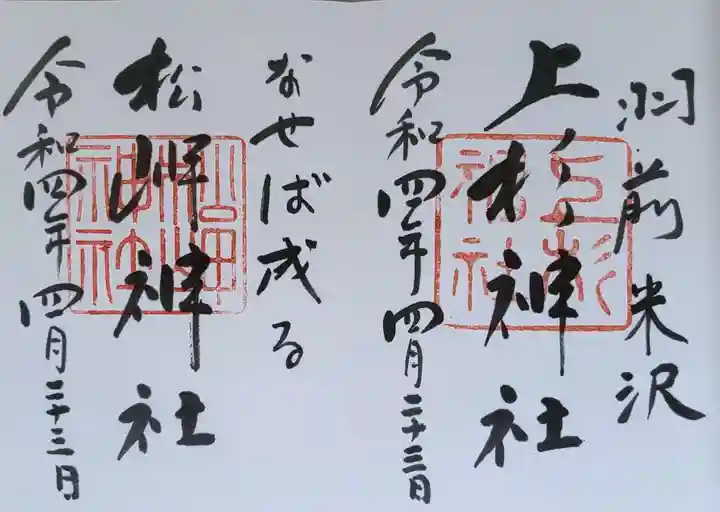 羽前米沢
上杉神社
令和四年四月二十三日
なせば成る
松岬神社
令和四年四月二十三日
上杉
神社
松岬
神社